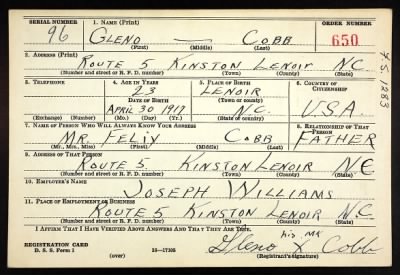 SERIAL NUMBER 1. NAME (Print) ORDER NUMBER
96 GLENO — COBB 650
(First) (Middle) (Last)
2. ADDRESS (Print)
ROUTE 5 KINSTON LENOIR N.C.
(Number and street or R. F. D. number) (Town) (County) (State)
3. TELEPHONE 4. AGE IN YEARS 5. PLACE OF BIRTH 6. COUNTRY OF CITIZENSHIP
23 LENOIR
DATE OF BIRTH (Town or county)
APRIL 30 1917 N.C. U.S.A.
(Exchange) (Number) (Mo.) (Day) (Yr.) (State or country)
7. NAME OF PERSON WHO WILL ALWAYS KNOW YOUR ADDRESS 8. RELATIONSHIP OF THAT PERSON
MR. FELIX COBB FATHER
(Mr., Mrs., Miss) (First) (Middle) (Last)
9. ADDRESS OF THAT PERSON
ROUTE 5 KINSTON LENOIR N.C.
(Number and street or R. F. D. number) (Town) (County) (State)
10. EMPLOYER'S NAME
JOSEPH WILLIAMS
11. PLACE OF EMPLOYMENT OR BUSINESS
ROUTE 5 KINSTON LENOIR N.C.
(Number and street or R. F. D. number) (Town) (County) (State)
I AFFIRM THAT I HAVE VERIFIED ABOVE ANSWERS AND THAT THEY ARE TRUE.
REGISTRATION CARD his mk
D. S. S. Form 1 16—17105 Gleno X Cobb
(over) (Registrant's signature)